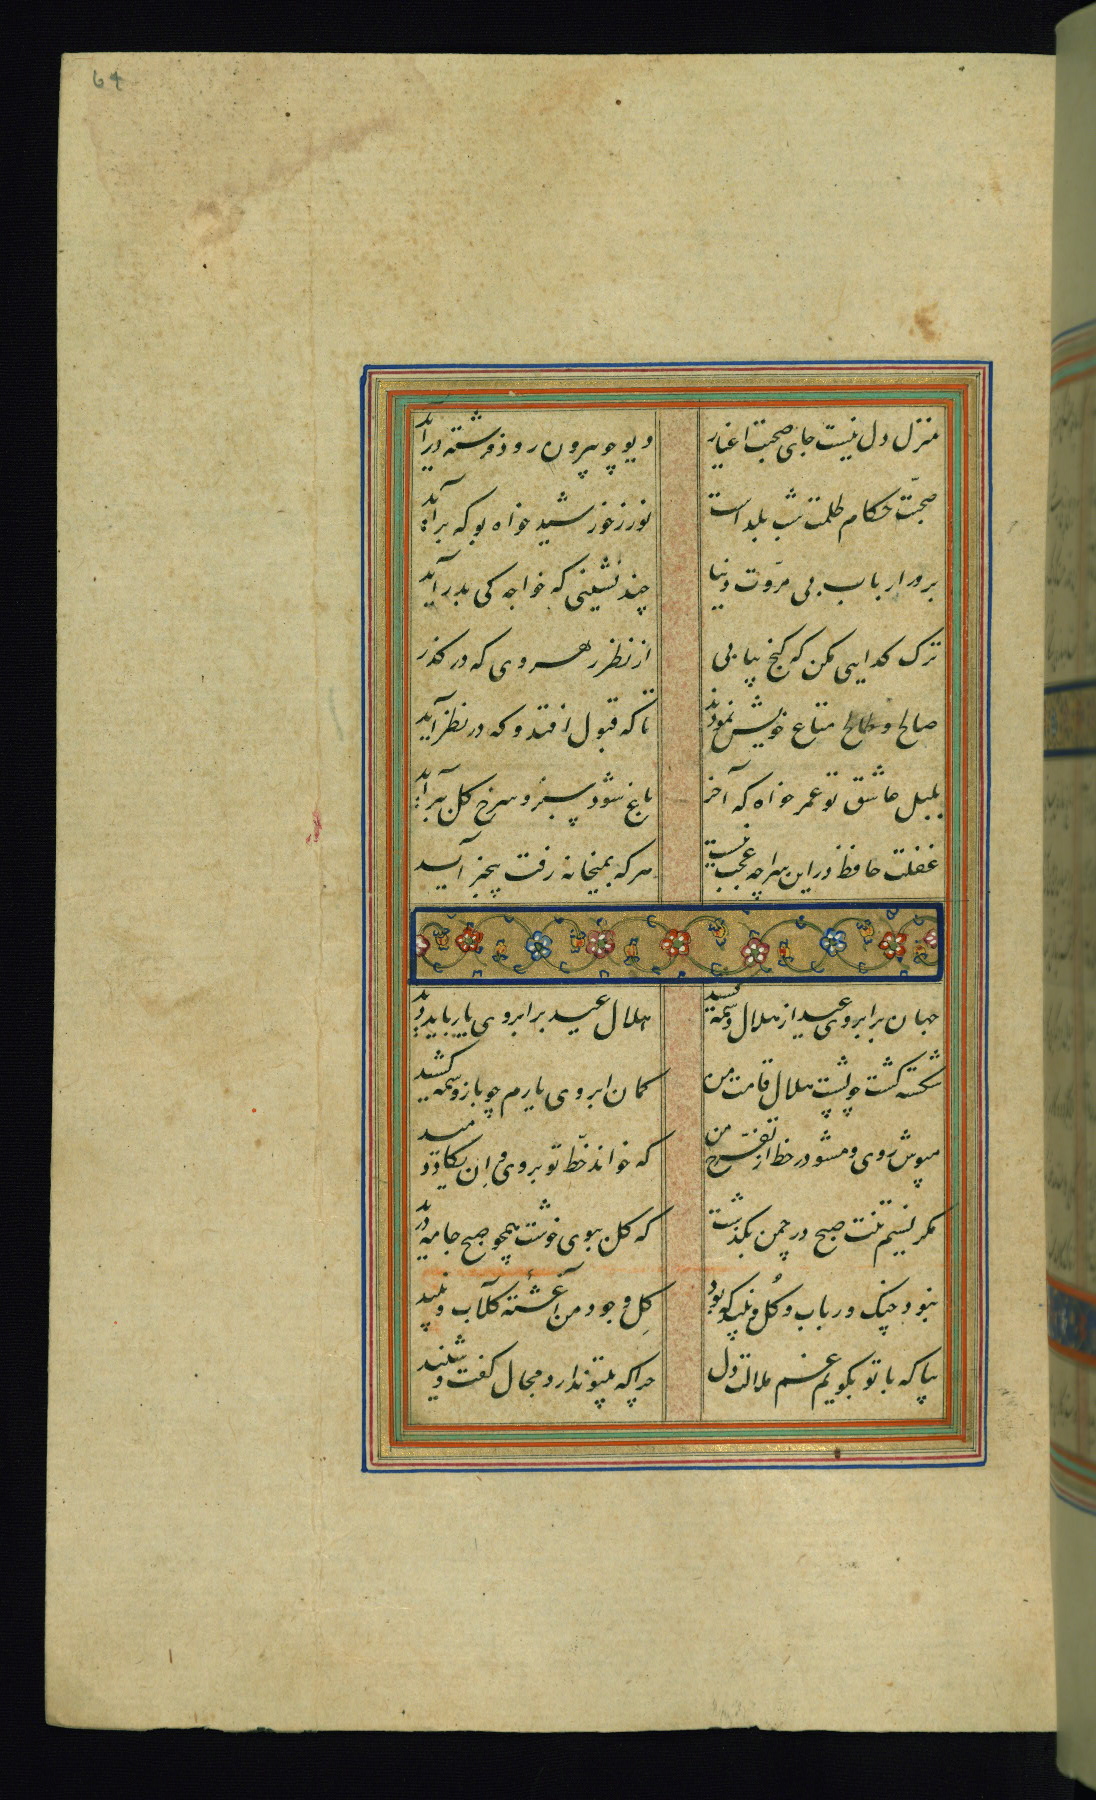 64
منزل دل نیست جای صحبت اغیار دیو چو بیرون رود فرشته درآید
صحبت حکام ظلمت شب یلداست نور ز خورشید خواه بو که برآید
بر در ارباب بی مروت دنیا چند نشینی که خواجه کی بدر آید
ترک گدایی مکن که گنج بیابی از نظر رهروی که در گذر
صالح و طالح متاع خویش نمودند تا که قبول افتد و که در نظر آید
بلبل عاشق تو عمر خواه که آخر باغ شود سبز و سرخ گل ببرآید
غفلت حافظ در این سراچه عجب نیست هر که بمیخانه رفت بیخبر آید
جهان بر ابروی عید از هلال وسمه کشید هلال عید بر ابروی یار باید دید
شکسته گشت چو پشت هلال قامت من کمان ابروی یارم چو باز وسمه کشید
مپوش روی و مشو در خط از تفرج من که خواند خط تو بر روی و ان یکاد دمید
مگر نسیم تنت صبح در چمن بگذشت که گل ببوی خوشت همچو صبح جامه درید
نبود چنگ و رباب و گل و نبید که بود گل وجود من آغشته گلاب و نبید
بیا که با تو بگویم غم ملالت دل چرا که بیتو ندارد مجال گفت و شنید